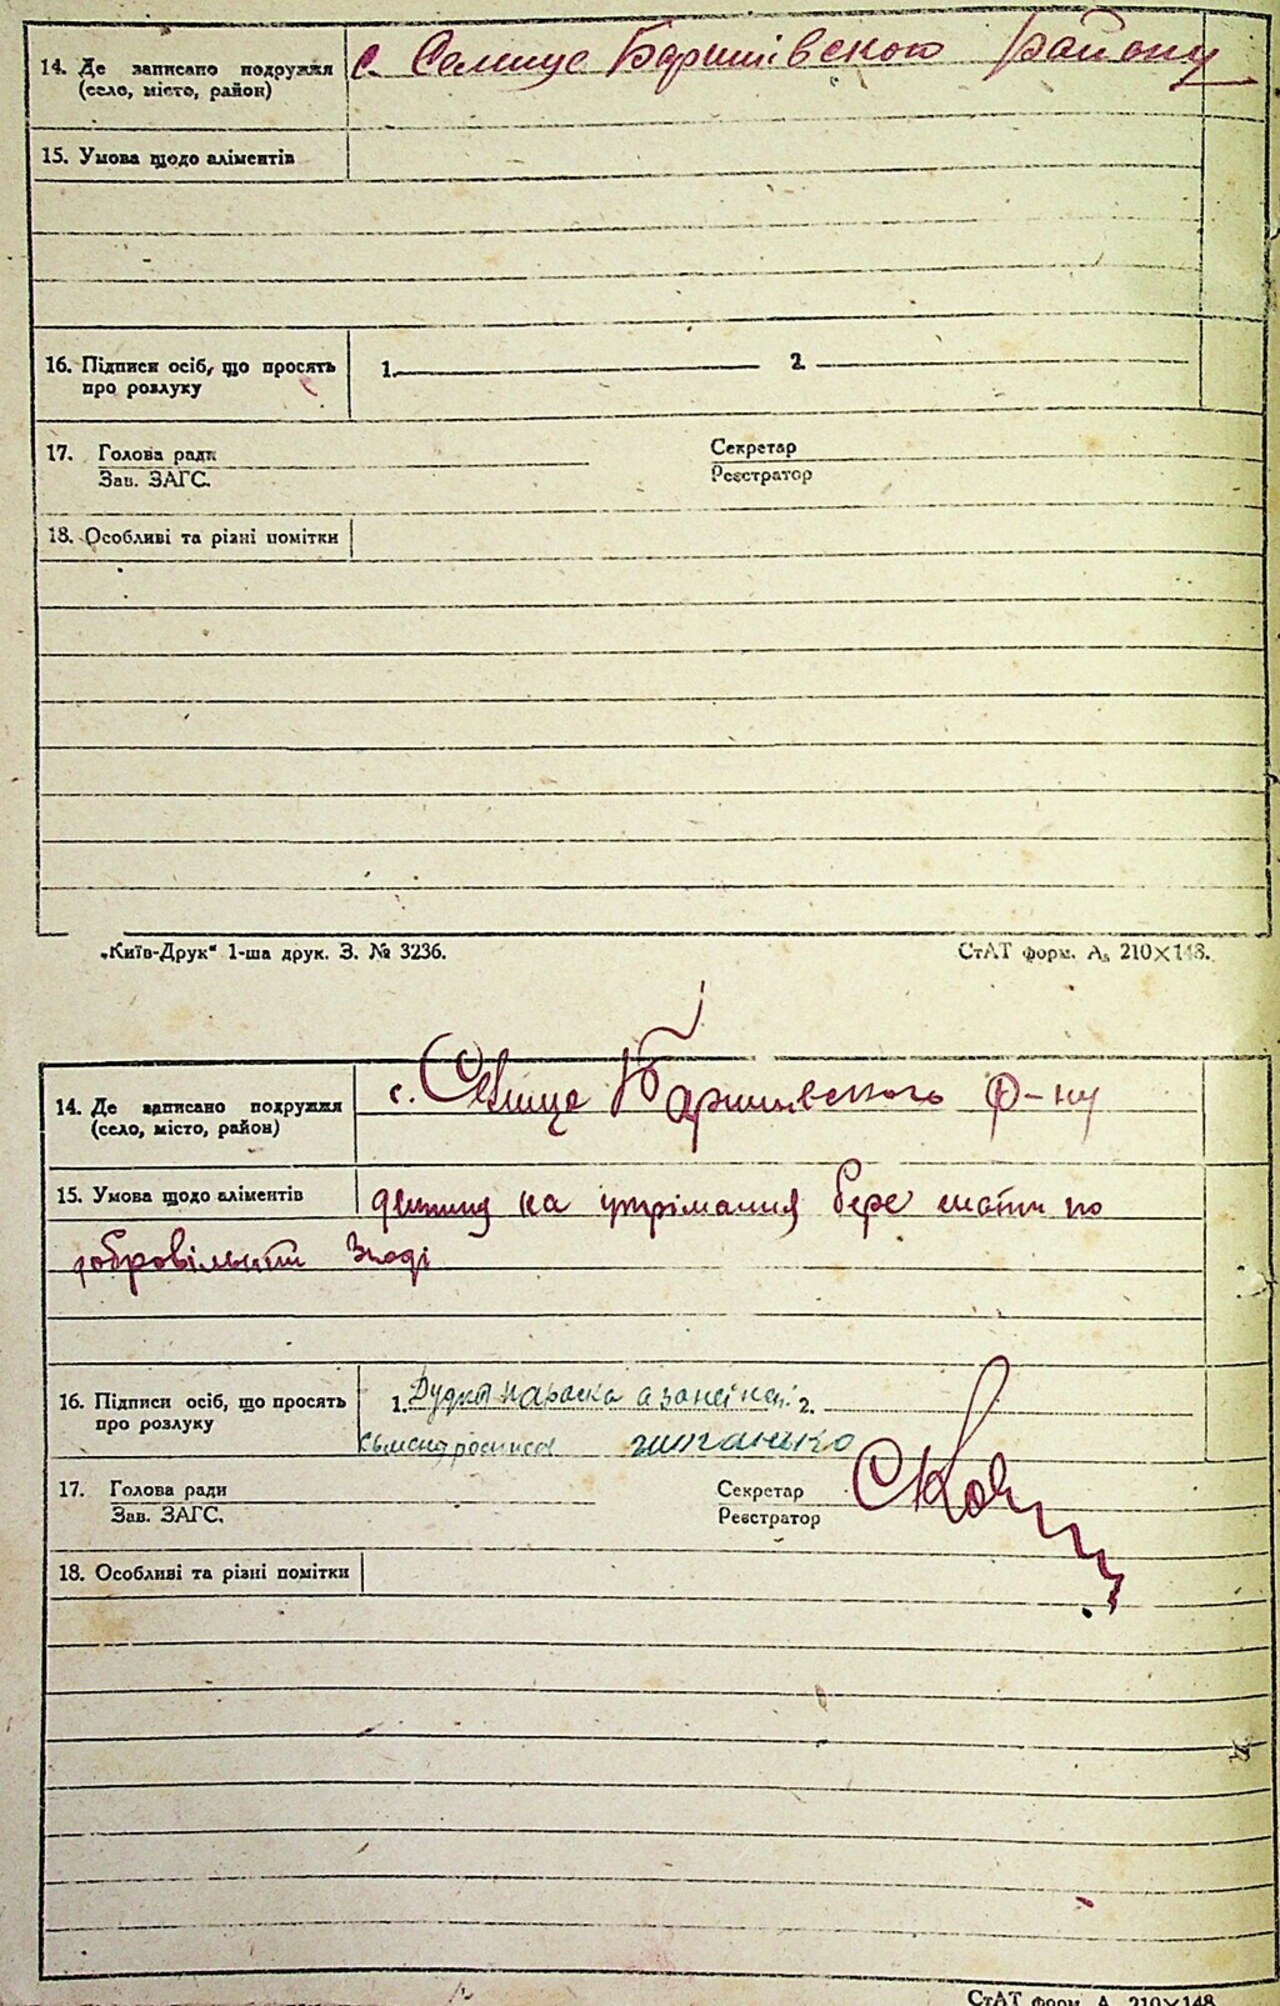 14. Де записано подружжя
(село, місто, район)
с. Селище Баришівского району
15. Умова щодо аліментів
16. Підписи осіб, що просять
про розлуку
1. 2.
17. Голова ради
Зав. ЗАГС.
Секретар
Реєстратор
18. Особливі та різні помітки
„Київ-Друк“ 1-ша друк. З. № 3236.
СтАТ форм. А₅ 210×148.
14. Де записано подружжя
(село, місто, район)
с. Селище Баришівского р-ну
15. Умова щодо аліментів
дитину на утрімання бере мати по
добровільній згоді
16. Підписи осіб, що просять
про розлуку
1. Дудка параска 2.
17. Голова ради
Зав. ЗАГС.
Секретар
Реєстратор
18. Особливі та різні помітки
СтАТ форм. А 210×148